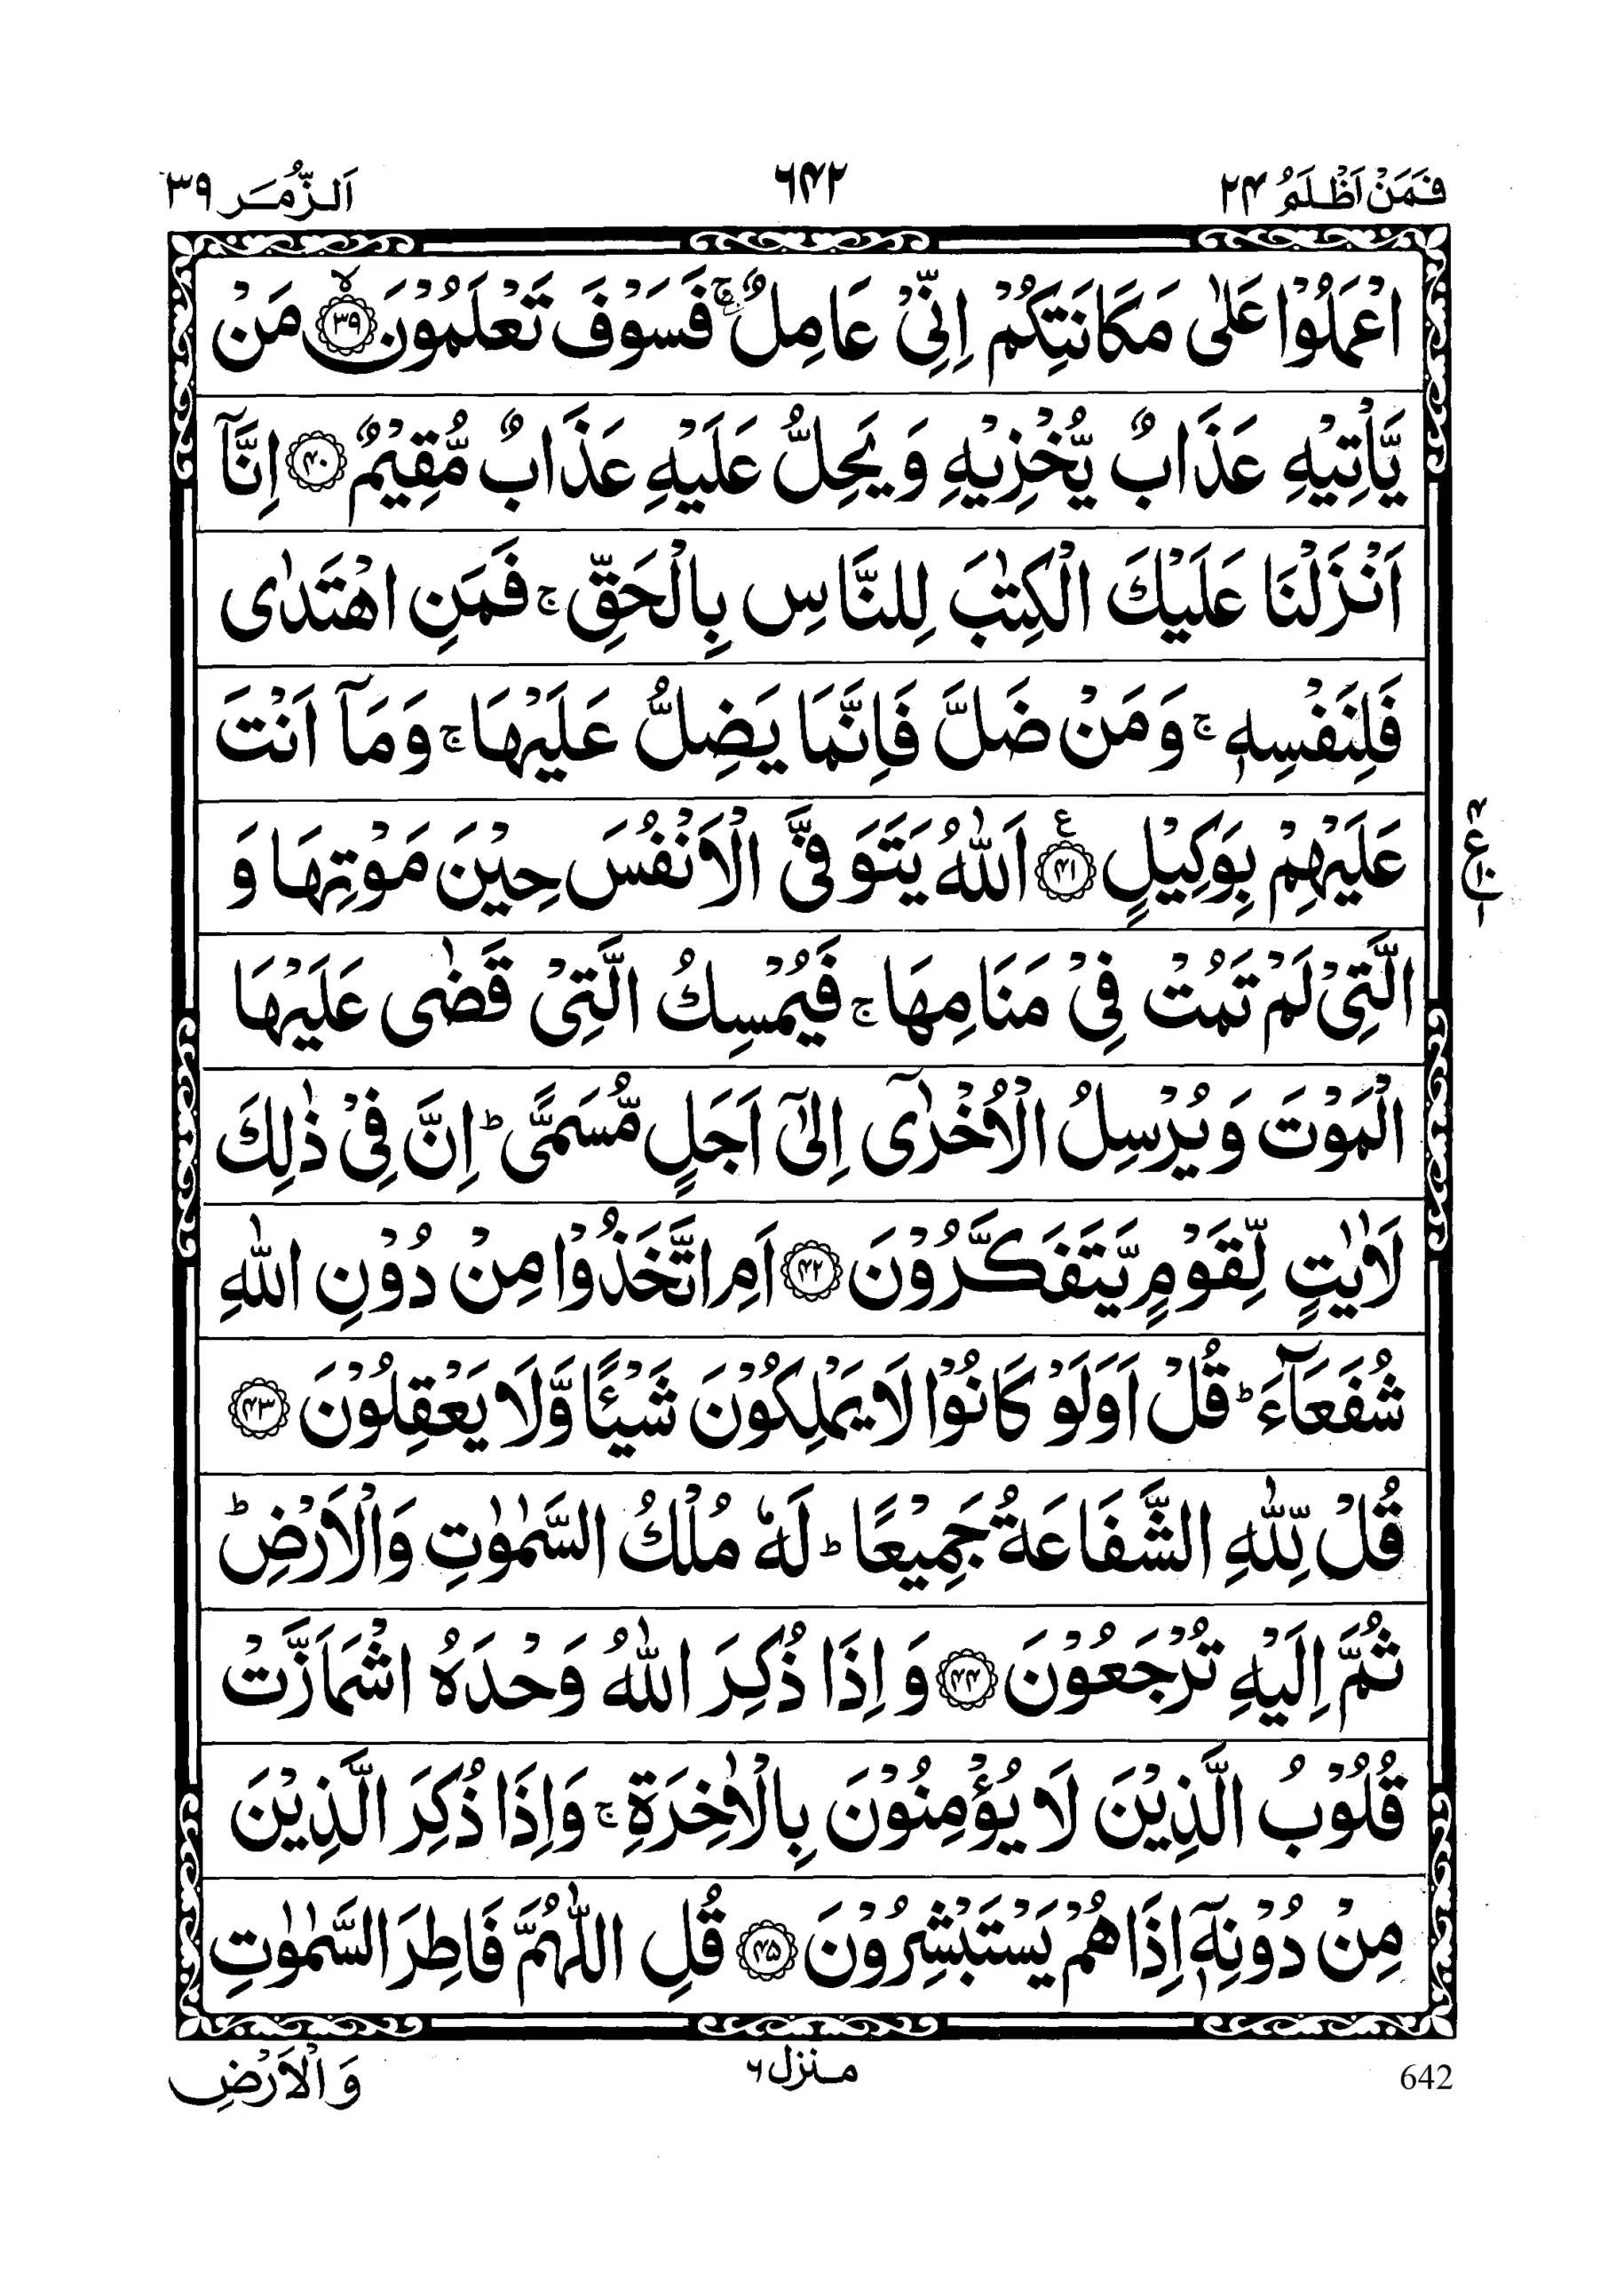 فَمَنْ اَظْلَمُ ۲۴ ۶۴۲ اَلزُّمَر ۳۹
اعْمَلُوْا عَلٰى مَكَانَتِكُمْ اِنِّىْ عَامِلٌ ۚ فَسَوْفَ تَعْلَمُوْنَ ۙ﴿۳۹﴾ مَنْ
يَّاْتِيْهِ عَذَابٌ يُّخْزِيْهِ وَ يَحِلُّ عَلَيْهِ عَذَابٌ مُّقِيْمٌ ﴿۴۰﴾ اِنَّاۤ
اَنْزَلْنَا عَلَيْكَ الْكِتٰبَ لِلنَّاسِ بِالْحَقِّ ۚ فَمَنِ اهْتَدٰى
فَلِنَفْسِهٖ ۚ وَمَنْ ضَلَّ فَاِنَّمَا يَضِلُّ عَلَيْهَا ۚ وَمَاۤ اَنْتَ
عَلَيْهِمْ بِوَكِيْلٍ ﴿۴۱﴾ ع اَللّٰهُ يَتَوَفَّى الْاَنْفُسَ حِيْنَ مَوْتِهَا وَ
الَّتِىْ لَمْ تَمُتْ فِىْ مَنَامِهَا ۚ فَيُمْسِكُ الَّتِىْ قَضٰى عَلَيْهَا
الْمَوْتَ وَ يُرْسِلُ الْاُخْرٰىۤ اِلٰۤى اَجَلٍ مُّسَمًّى ؕ اِنَّ فِىْ ذٰلِكَ
لَاٰيٰتٍ لِّقَوْمٍ يَّتَفَكَّرُوْنَ ﴿۴۲﴾ اَمِ اتَّخَذُوْا مِنْ دُوْنِ اللّٰهِ
شُفَعَآءَ ؕ قُلْ اَوَلَوْ كَانُوْا لَا يَمْلِكُوْنَ شَيْـًٔا وَّلَا يَعْقِلُوْنَ ﴿۴۳﴾
قُلْ لِّلّٰهِ الشَّفَاعَةُ جَمِيْعًا ؕ لَهٗ مُلْكُ السَّمٰوٰتِ وَالْاَرْضِ ؕ
ثُمَّ اِلَيْهِ تُرْجَعُوْنَ ﴿۴۴﴾ وَ اِذَا ذُكِرَ اللّٰهُ وَحْدَهُ اشْمَاَزَّتْ
قُلُوْبُ الَّذِيْنَ لَا يُؤْمِنُوْنَ بِالْاٰخِرَةِ ۚ وَاِذَا ذُكِرَ الَّذِيْنَ
مِنْ دُوْنِهٖۤ اِذَا هُمْ يَسْتَبْشِرُوْنَ ﴿۴۵﴾ قُلِ اللّٰهُمَّ فَاطِرَ السَّمٰوٰتِ
642 مـنزل ۶ وَالْاَرْضِ